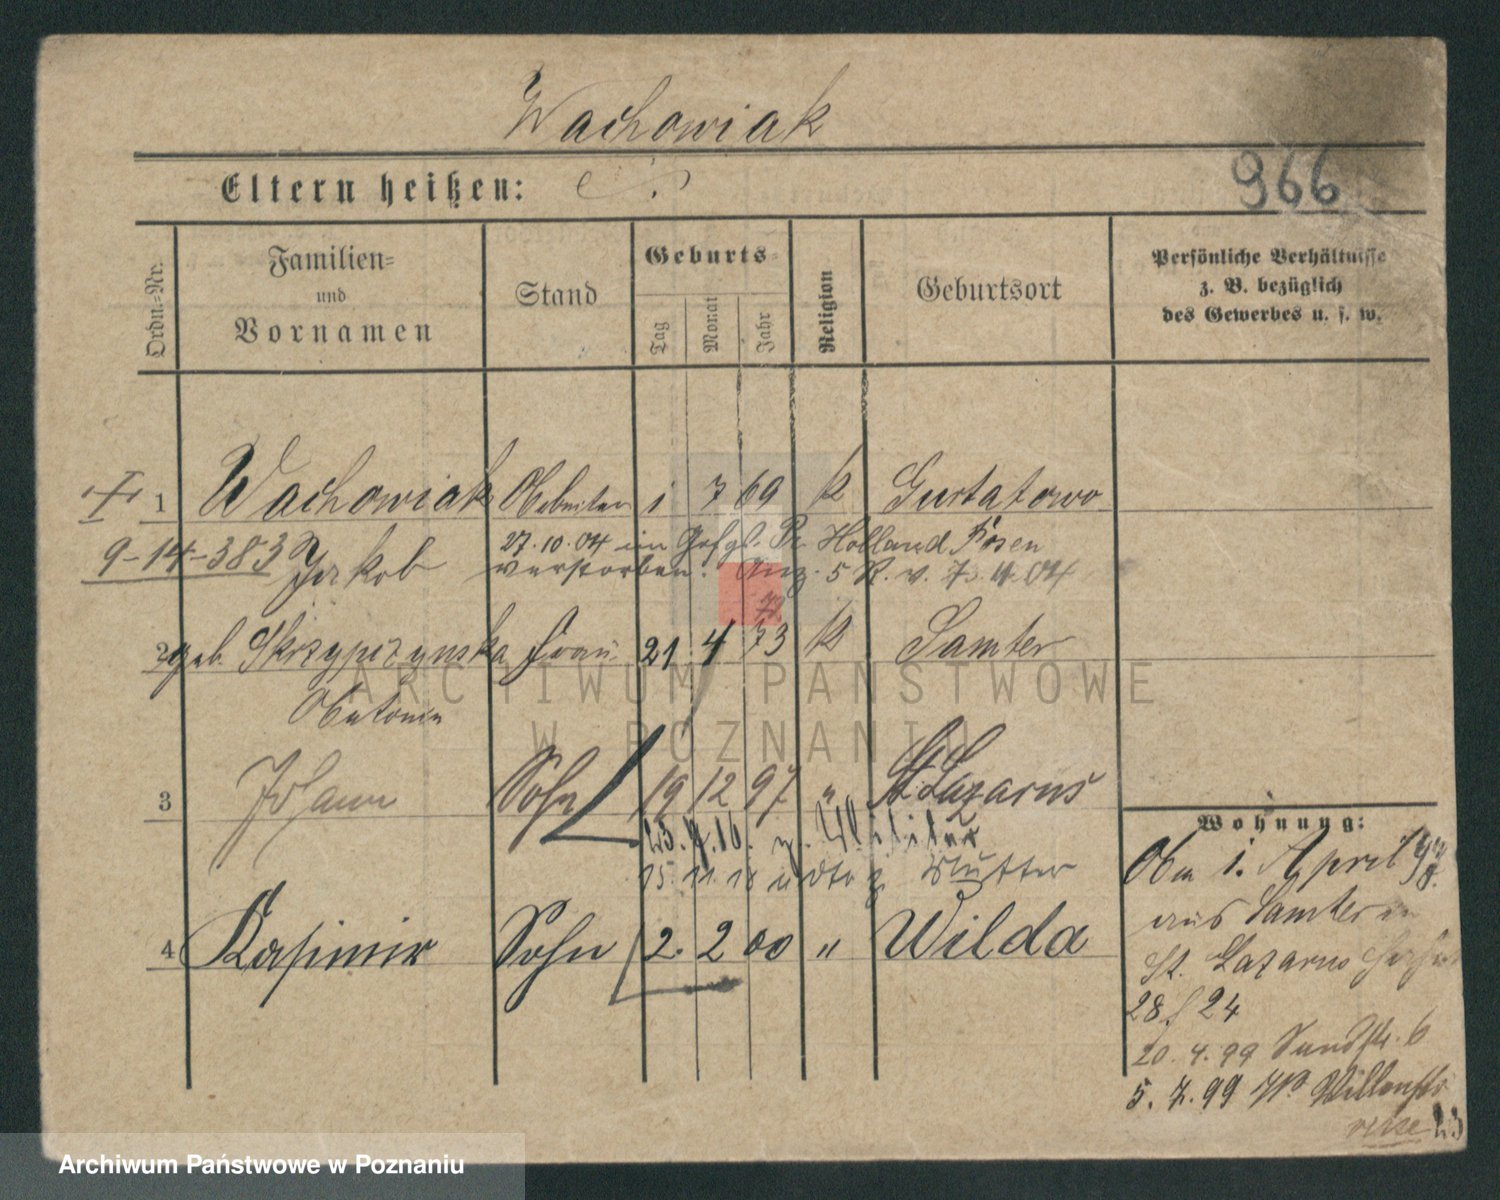 Wachowiak
Eltern heißen:
966
Ordn.=Nr.
Familien=
und
Vornamen
Stand
Geburts=
Tag
Monat
Jahr
Religion
Geburtsort
Persönliche Verhältnisse
z. B. bezüglich
des Gewerbes u. s. w.
1 Wachowiak Arbeiter 1 7 69 k
9-14-383 Jakob
27.10.04 im Holland Posen
verstorben. Anz. 5 R. v. 04
2 geb. Skrzypczynska Frau 21 4 73 k Samter
Antonie
3 Johann Sohn 19 12 97 " St. Lazarus
z. Militär
15. 11. 18 z. Mutter
4 Kasimir Sohn 2. 2 00 " Wilda
Wohnung:
Am 1. April 98
aus Samter in
St. Lazarus
28 f 24
20. 4. 99 6
5. 7. 99
23
ARCHIWUM PAŃSTWOWE
W POZNANIU
Archiwum Państwowe w Poznaniu